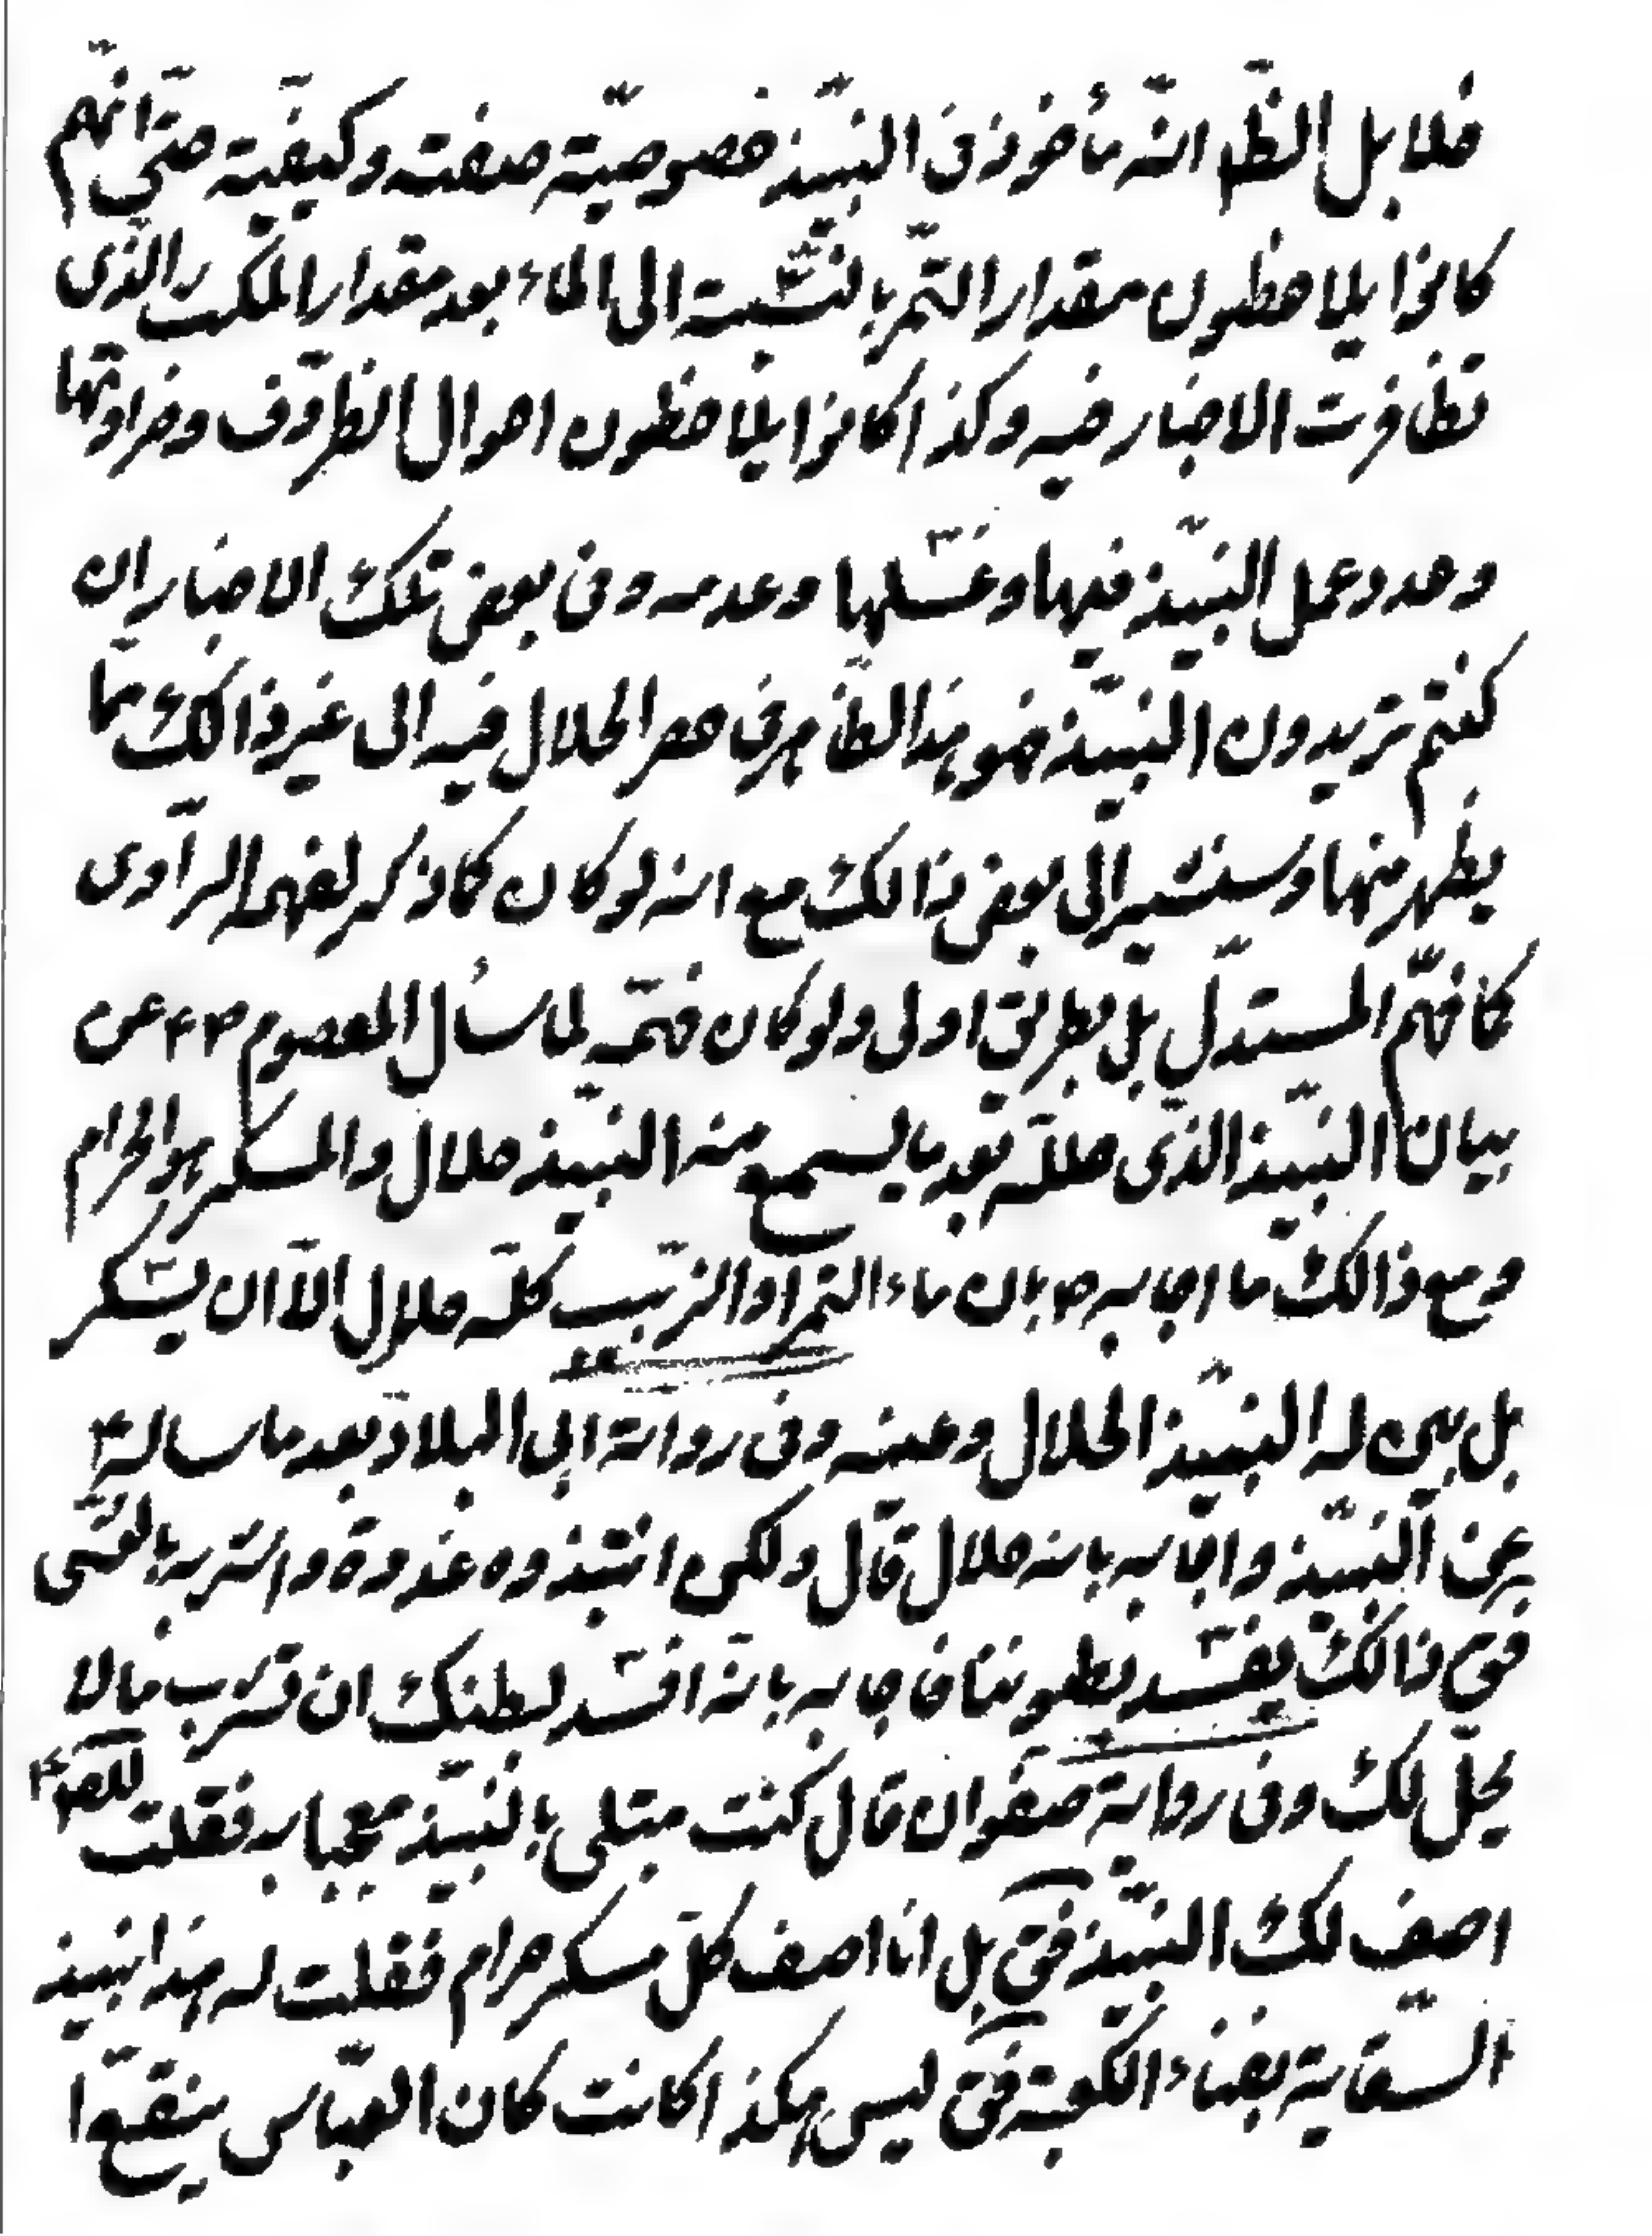 فلا بل الظ انّه مأخوذ فى النبيّذ خصوصيّة صفته وكيفيّة حتّى انّهم
كانوا يلاحظون مقدار التّمر بالنّسبة الى الماء بعد مقدار المكث الّذى
تظافرت الاخبار فيه وكذا كانوا يلاحظون احوال الظّروف وضراوتها
وحدد عمل النبيّذ فيها وغسلها وعدمه وفى بعض تلك الاخبار ان
كنتم تريدون النبيّذ فهو هذا الظّاهر فى حصر الحلال فيه الى غير ذالك ممّا
يظهر منها وسنشير الى بعض ذالك مع انه لو كان كما ذكر لفهمه الرّاوى
كما فهّم المستدلّ بل بطريق اولى ولو كان فهمّه لما سأل المعصوم ع عن
بيان النبيّذ الّذى حلّله بعد ما يسمع منه النبيّذ حلال والمسكر هو الحرام
ومع ذالك ما اجابه بان ماء التمر او الزّبيب كلّه حلال الّا ان يسكر
بل بيّن له النبيّذ الحلال وعينه وفى رواية ابى البلاد بعد ما ساله ع
عن النبيّذ واجابه بانه حلال قال ولكن انتبذوه غدوة واشربه بالعشى
فق ذالك يفسد بطوننا فاجابه بانّه افسد لبطنك ان تشرب ما لا
يحلّ لك وفى رواية صفوان قال كنت مبتلى بالنبيّذ معجبا به فقلت للص ع
اصف لك النبيّذ فق بل انا اصف كلّ مسكر حرام فقلت له هذا نبيذ
السّقاية بفناء الكعبة فق ليس هكذا كانت كان العبّاس ينقع ا